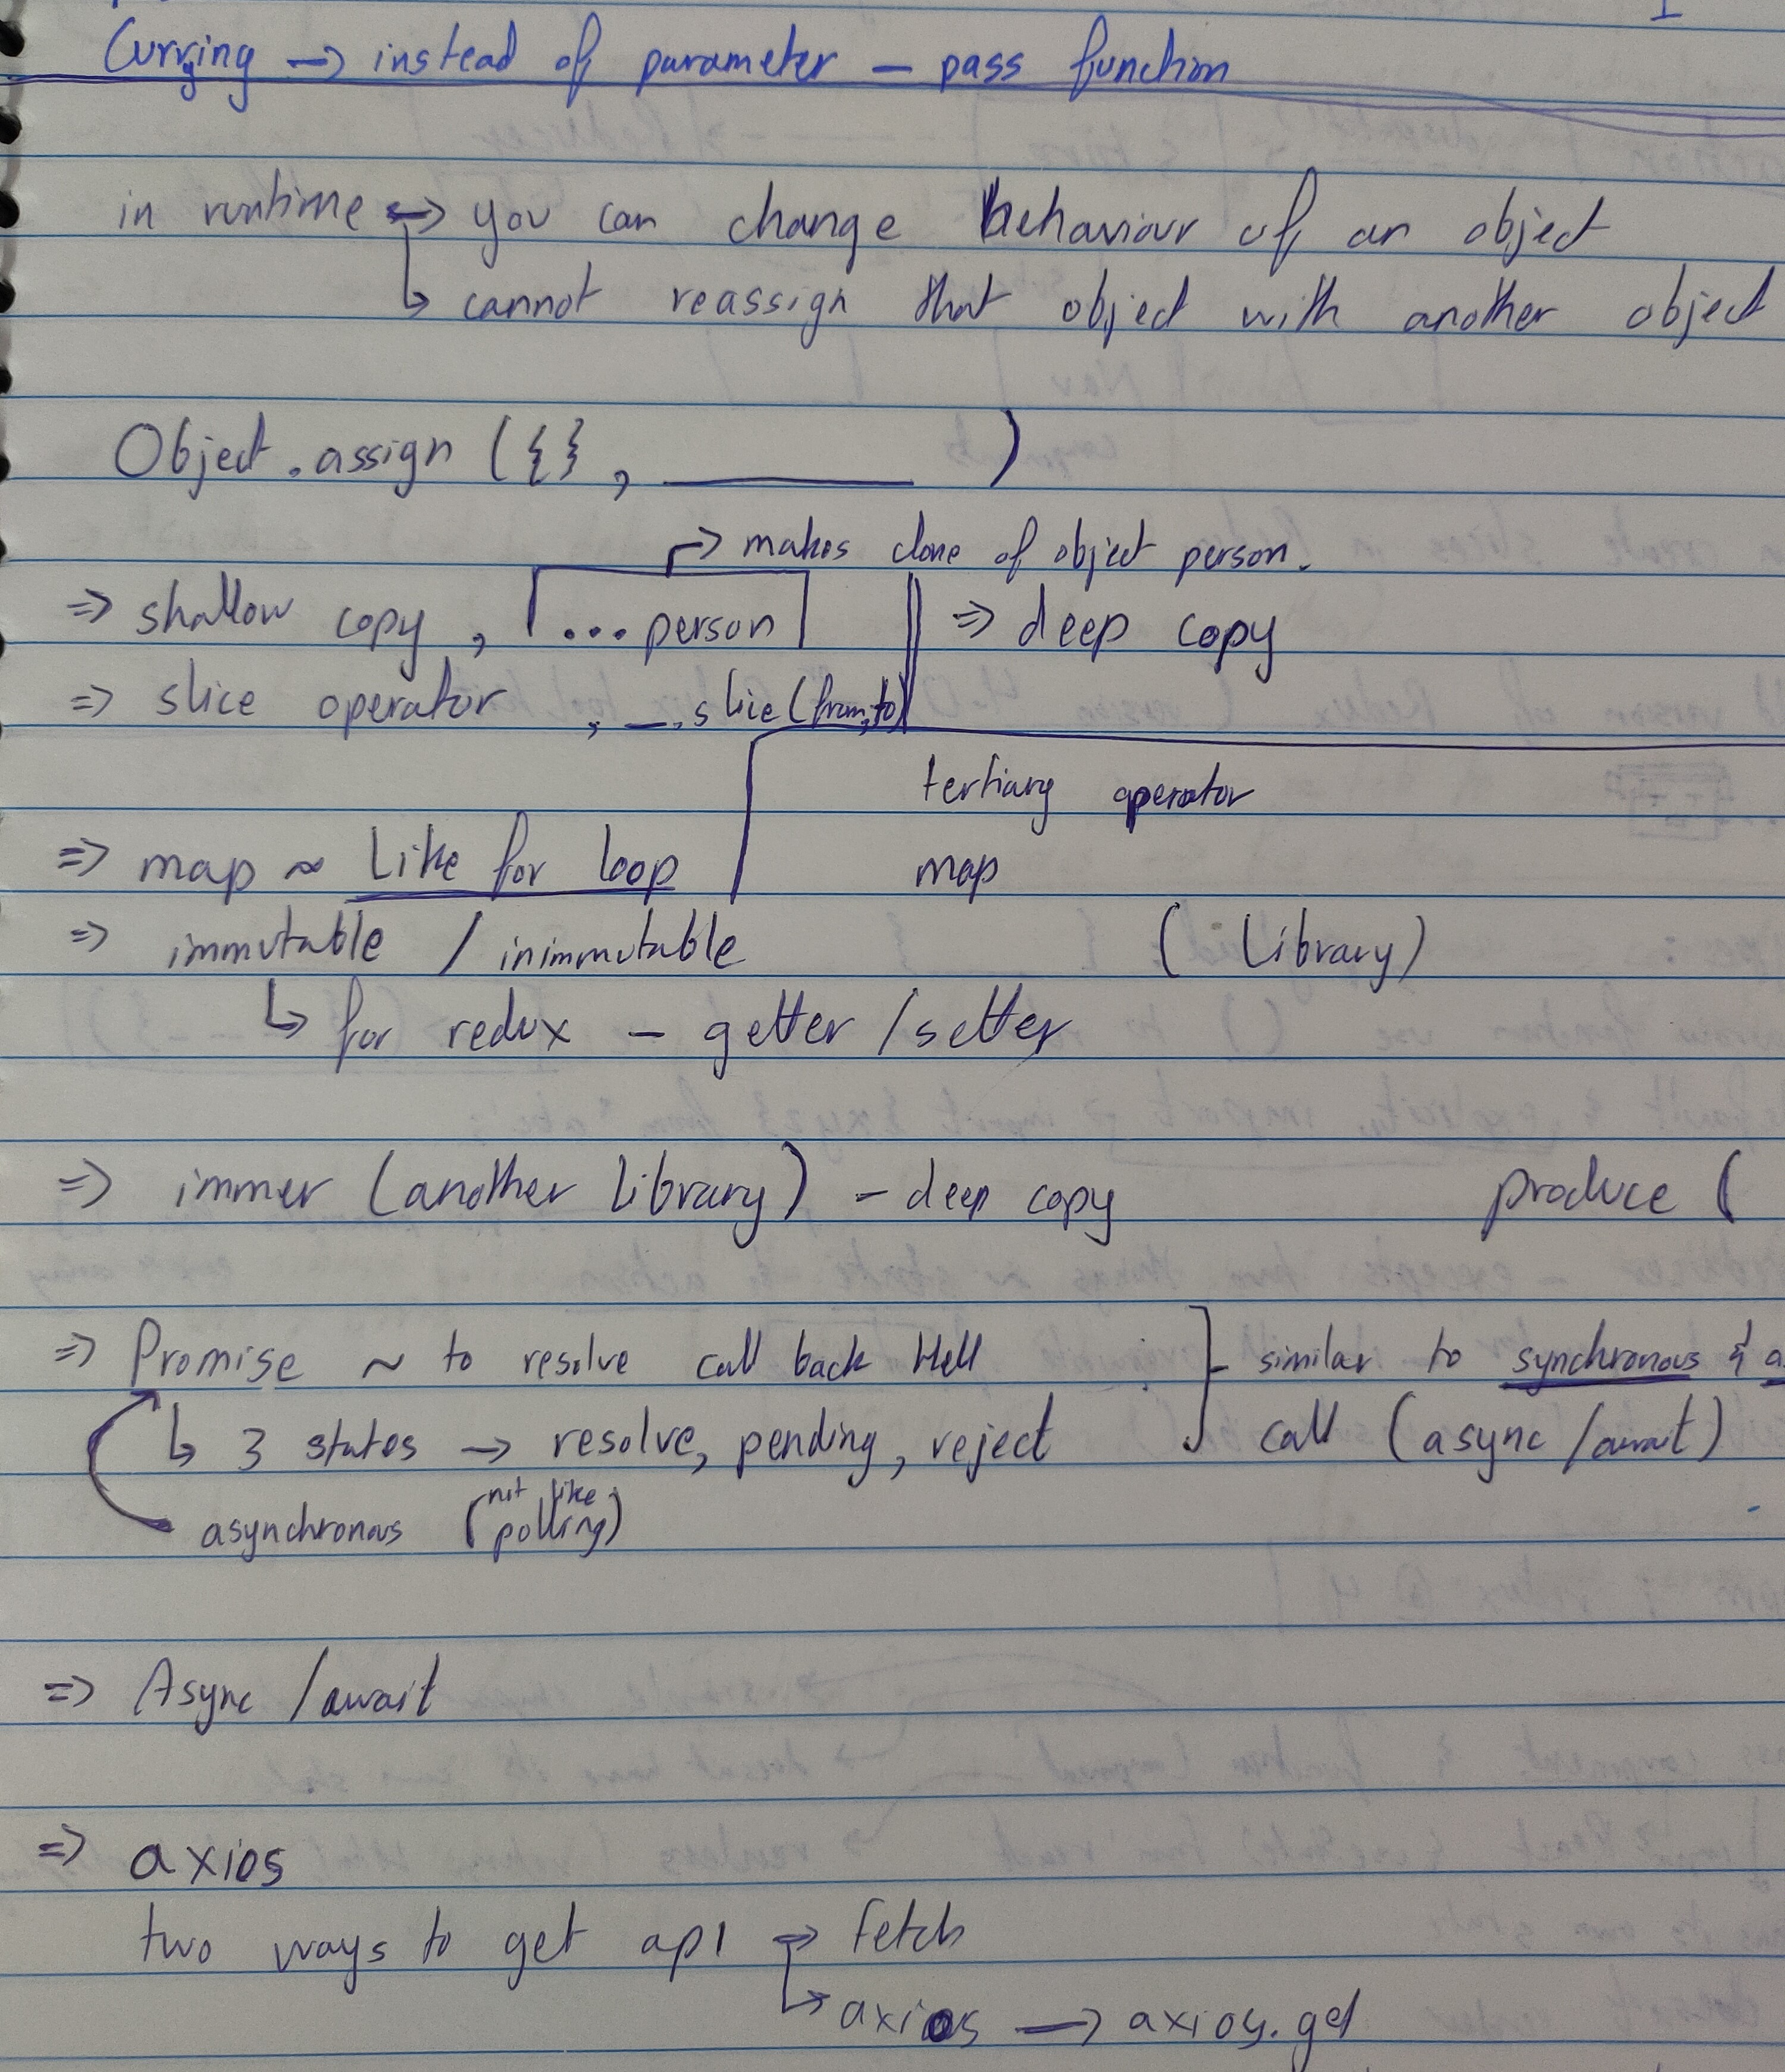 Currying → instead of parameter – pass function
in runtime ↔ you can change behaviour of an object
↳ cannot reassign that object with another object
Object.assign ({}, ________ )
↱ makes clone of object person.
⇒ shallow copy, ...person ⇒ deep copy
⇒ slice operator, _.slice(from,to)
tertiary operator
⇒ map ~ Like for loop map
⇒ immutable / inimmutable (Library)
↳ for redux – getter / setter
⇒ immer (another library) – deep copy produce (
⇒ Promise ~ to resolve call back Hell } similar to synchronous & a
↳ 3 states → resolve, pending, reject call (async / await)
asynchronous (not like polling)
⇒ Async / await
⇒ axios
two ways to get api ⇒ fetch
↳ axios → axios.get